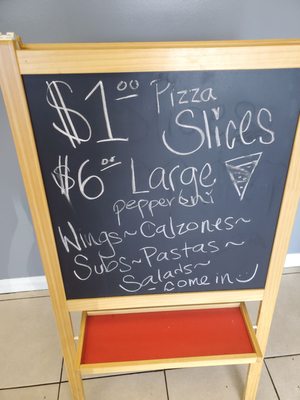 $1.00 Pizza
Slices
$6.00 Large
pepperoni
Wings~Calzones~
Subs~Pastas~
Salads~
come in